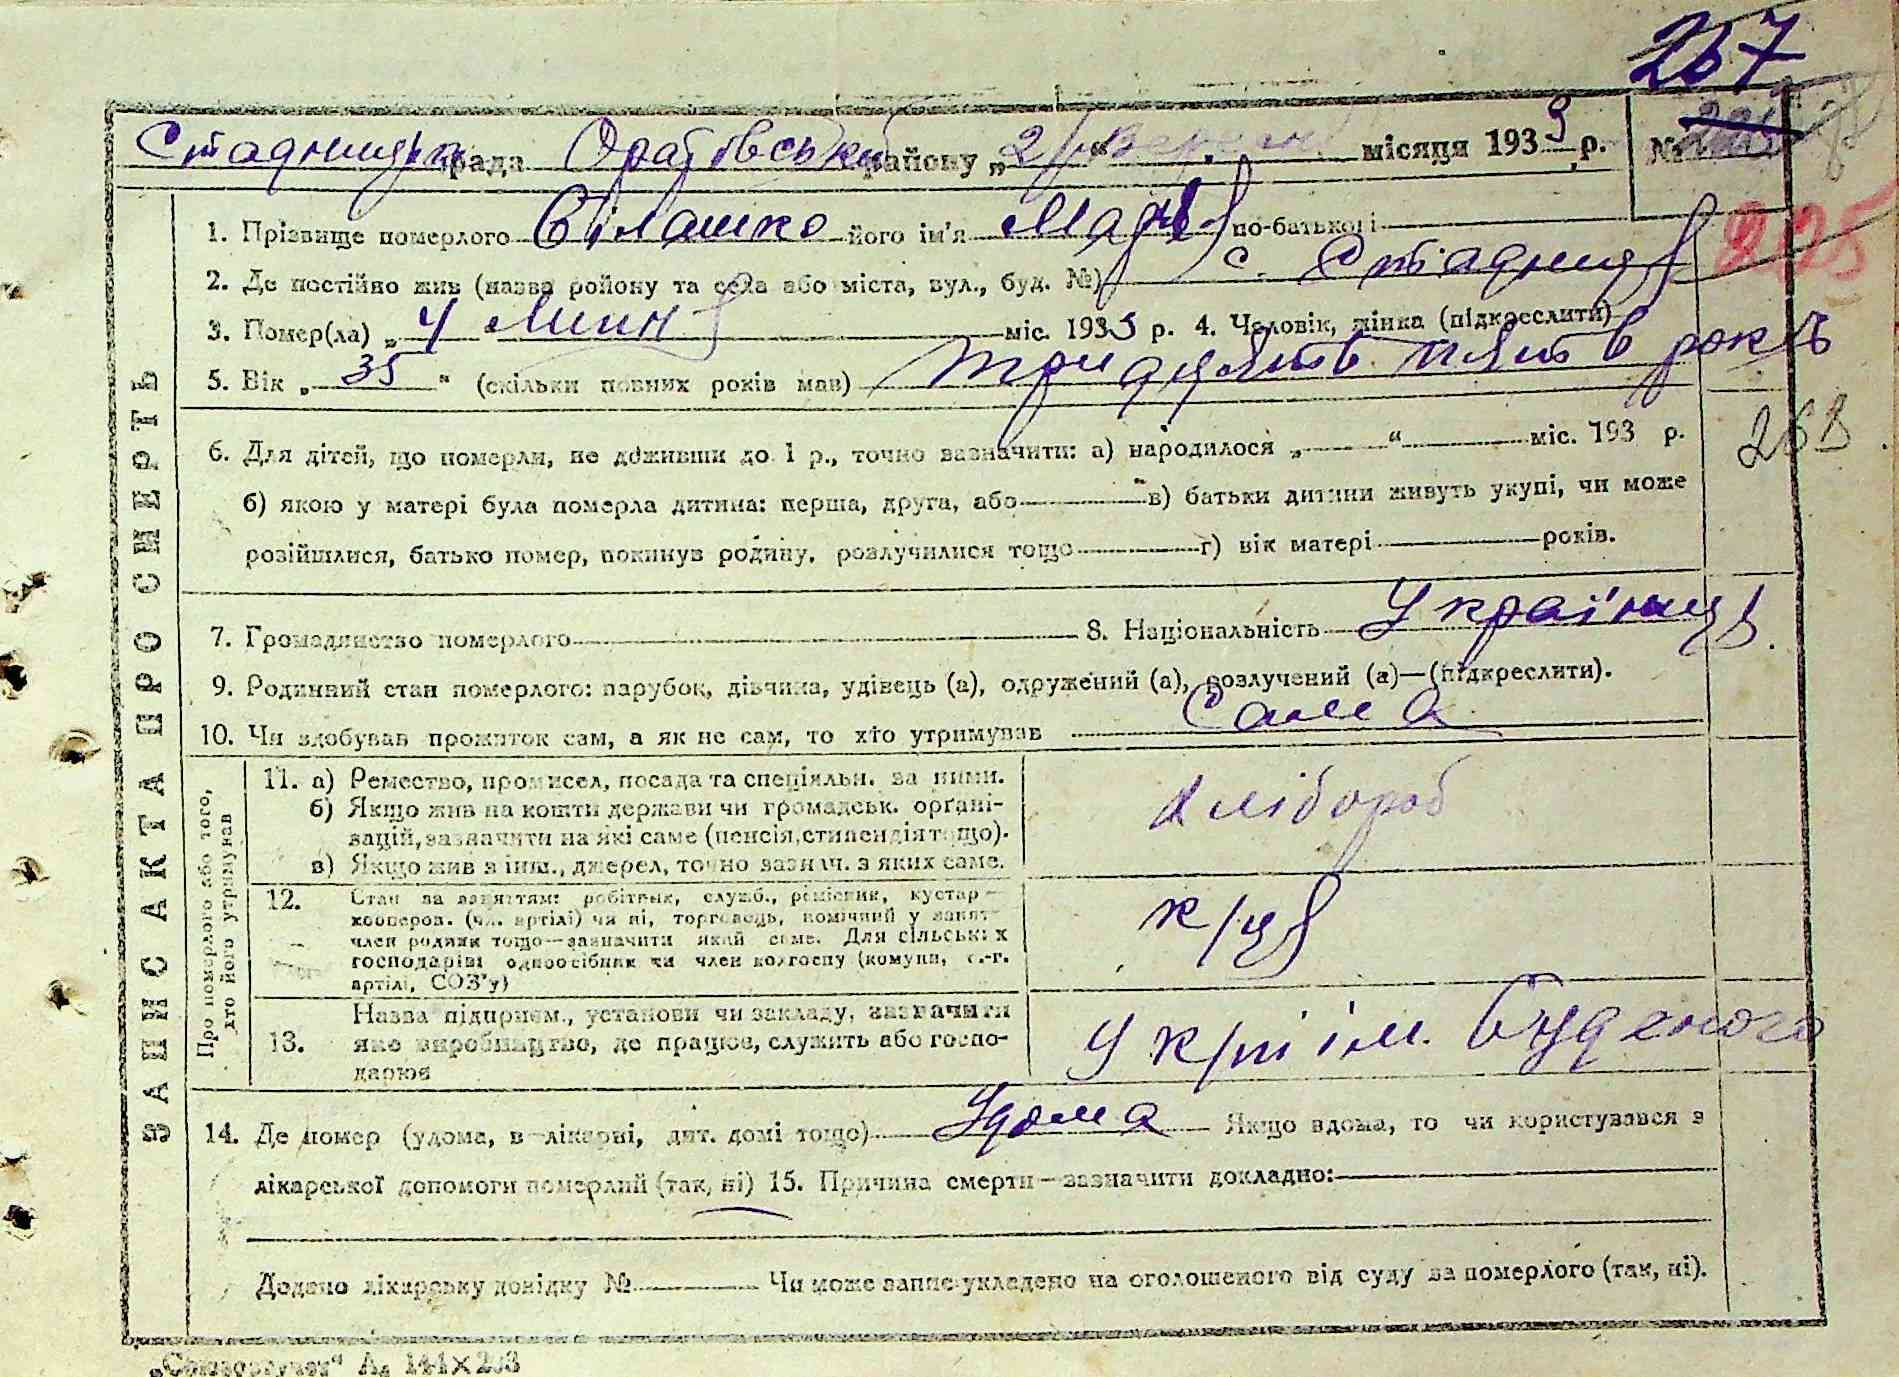 267
Стадницька рада Оратовський району „21“ Вересня місяця 1933 р. №
1. Прізвище померлого Білашко його ім'я Марія по-батькові
225
2. Де постійно жив (назва ройону та села або міста, вул., буд. №) с. Стадниця
3. Помер(ла) „4 липня міс. 1933 р. 4. Чоловік, жінка (підкреслити)
5. Вік „35“ (скільки повних років мав) тридцять пять років
268
6. Для дітей, що померли, не доживши до 1 р., точно зазначити: а) народилося „ “ міс. 193 р.
б) якою у матері була померла дитина: перша, друга, або в) батьки дитини живуть укупі, чи може
розійшлися, батько помер, покинув родину, розлучилися тощо г) вік матері років.
7. Громадянство померлого 8. Національність Українця.
9. Родинний стан померлого: парубок, дівчина, удівець (а), одружений (а), розлучений (а)—(підкреслити).
10. Чи здобував прожиток сам, а як не сам, то хто утримував Сама
ЗАПИС АКТА ПРО СМЕРТЬ
Про померлого або того, хто його утримував
11. а) Ремество, промисел, посада та спеціяльн. за ними.
б) Якщо жив на кошти держави чи громадськ. органі-
зацій, зазначити на які саме (пенсія, стипендія тощо).
в) Якщо жив з інш., джерел, точно зазнач. з яких саме.
хлібороб
12. Стан за заняттям: робітник, служб., ремісник, кустар—
кооперов. (чл. артілі) чи ні, торговець, помічний у занят—
член родини тощо—зазначити який саме. Для сільських
господарів: одноосібник чи член колгоспу (комуни, с.-г.
артілі, СОЗ'у)
к/ця
13. Назва підприєм., установи чи закладу, зазначити
яке виробництво, де працює, служить або госпо-
дарює
У к/ті ім. Буденого
14. Де помер (удома, в лікарні, дит. домі тощо) Удома Якщо вдома, то чи користувався з
лікарської допомоги померлий (так, ні) 15. Причина смерти—зазначити докладно:
Додано лікарську довідку № Чи може запис укладено на оголошеного від суду за померлого (так, ні).